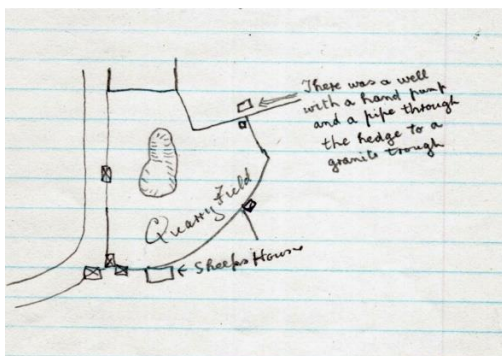 There was a well
with a hand pump
and a pipe through
the hedge to a
granite trough
Quarry Field
Sheeps House